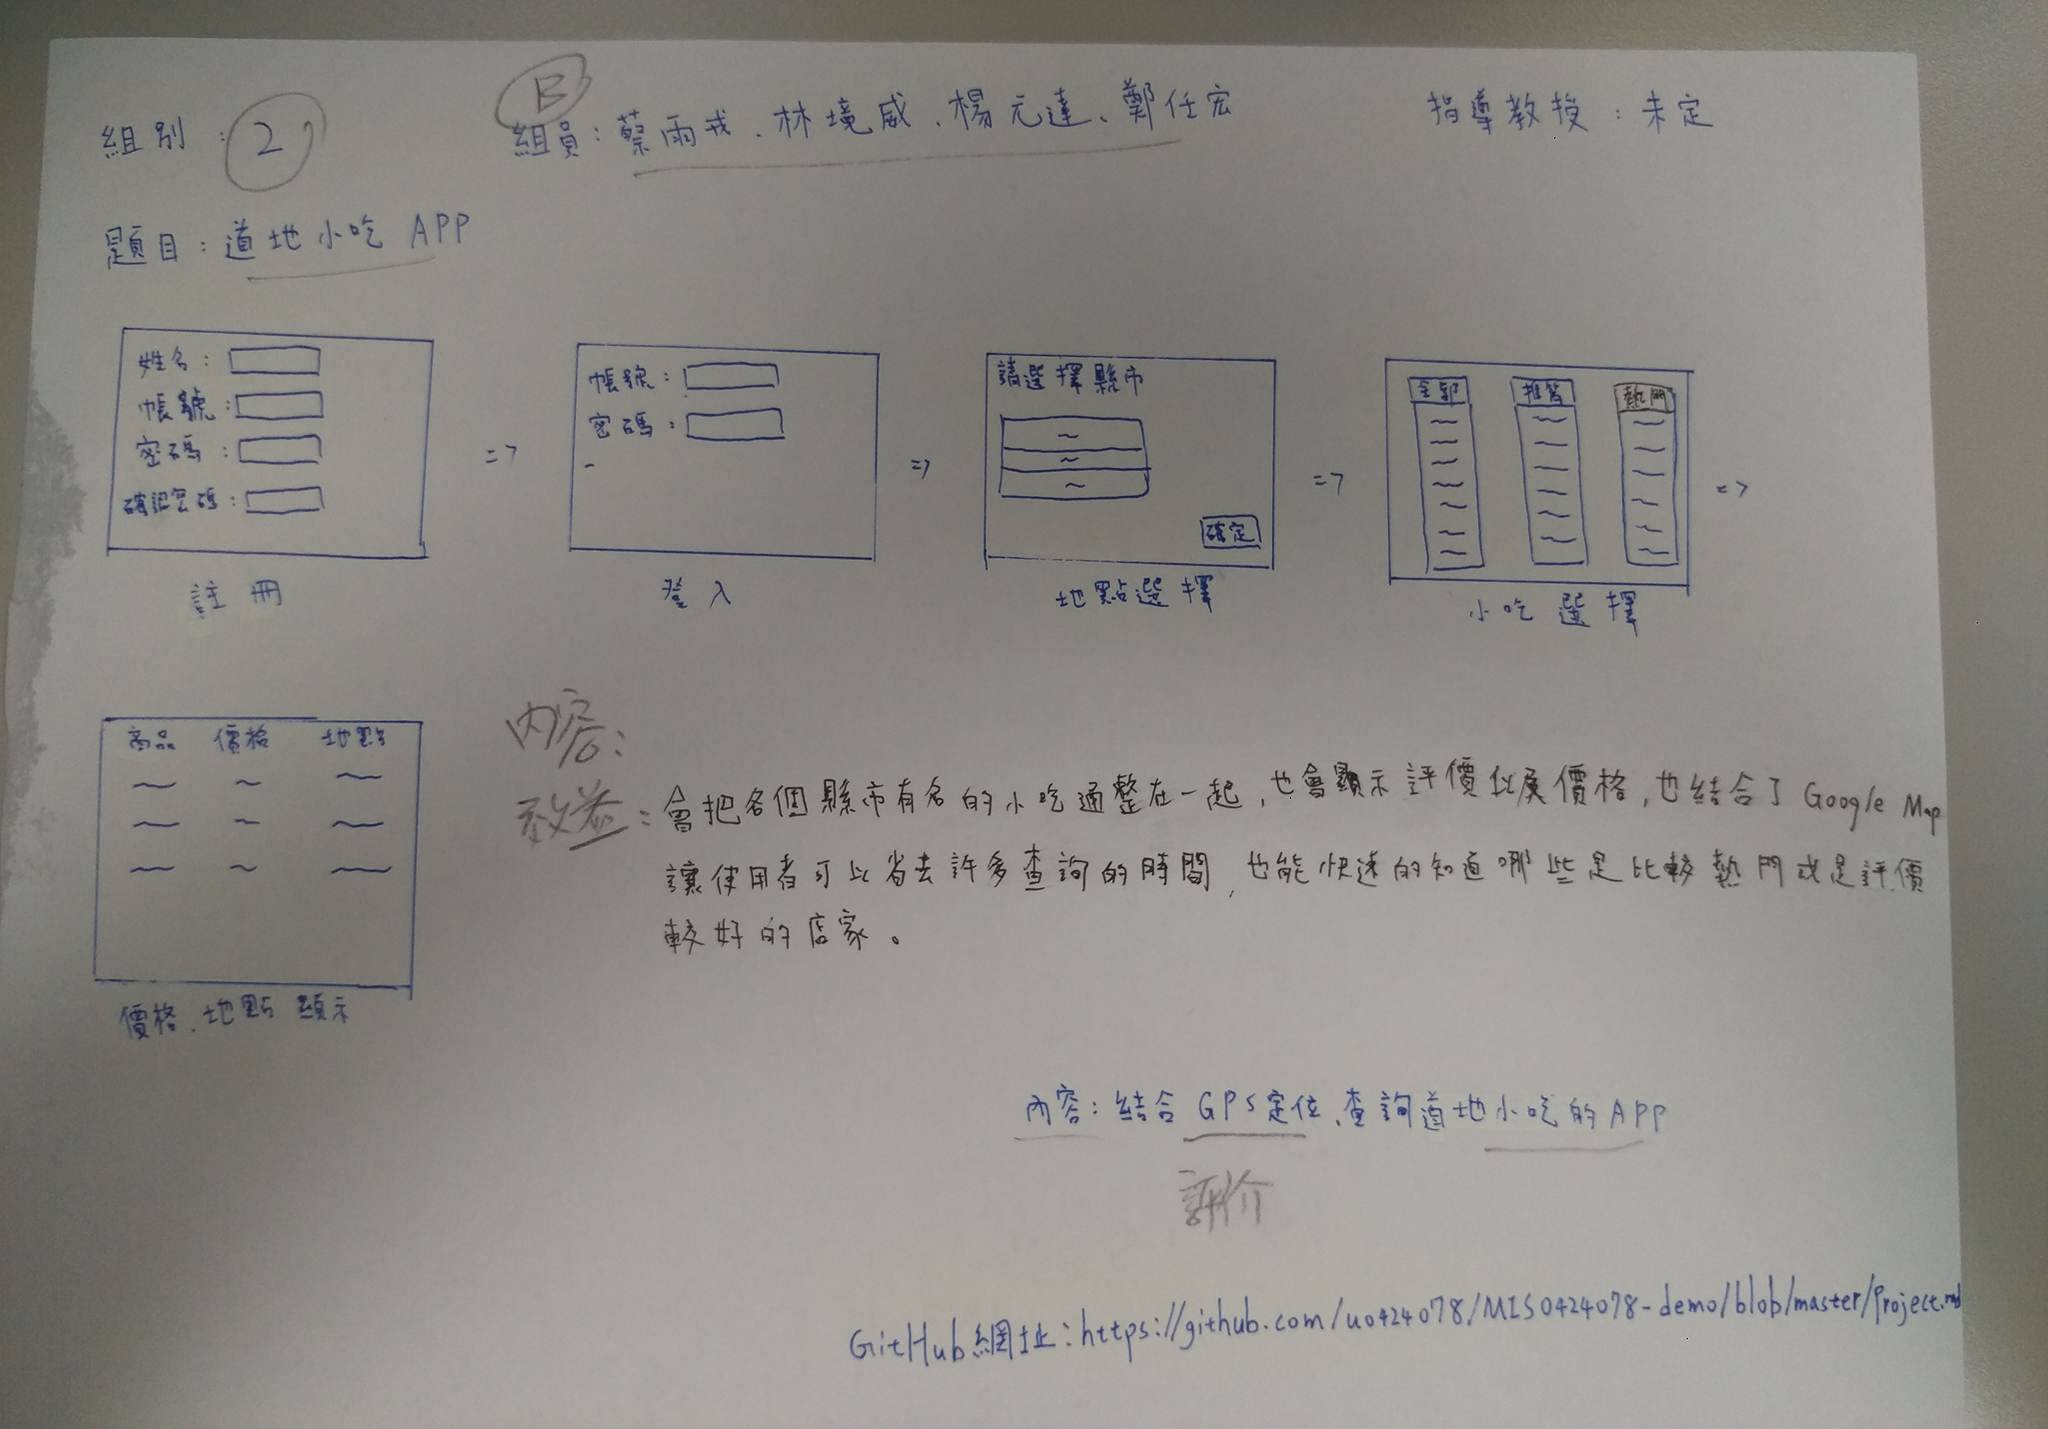 組別：2
B
組員：蔡雨戎、林境威、楊元達、鄭任宏
指導教授：未定
題目：道地小吃 APP
姓名：
帳號：
密碼：
確認密碼：
註冊
=>
帳號：
密碼：
登入
=>
請選擇縣市
確定
地點選擇
=>
全部 推薦 熱門
小吃選擇
=>
商品 價格 地點
價格、地點顯示
內容：
效益：會把各個縣市有名的小吃通整在一起，也會顯示評價以及價格，也結合了 Google Map
讓使用者可以省去許多查詢的時間，也能快速的知道哪些是比較熱門或是評價
較好的店家。
內容：結合 GPS定位、查詢道地小吃的APP
評价
GitHub網址：https://github.com/u0424078/MIS0424078-demo/blob/master/Project.md